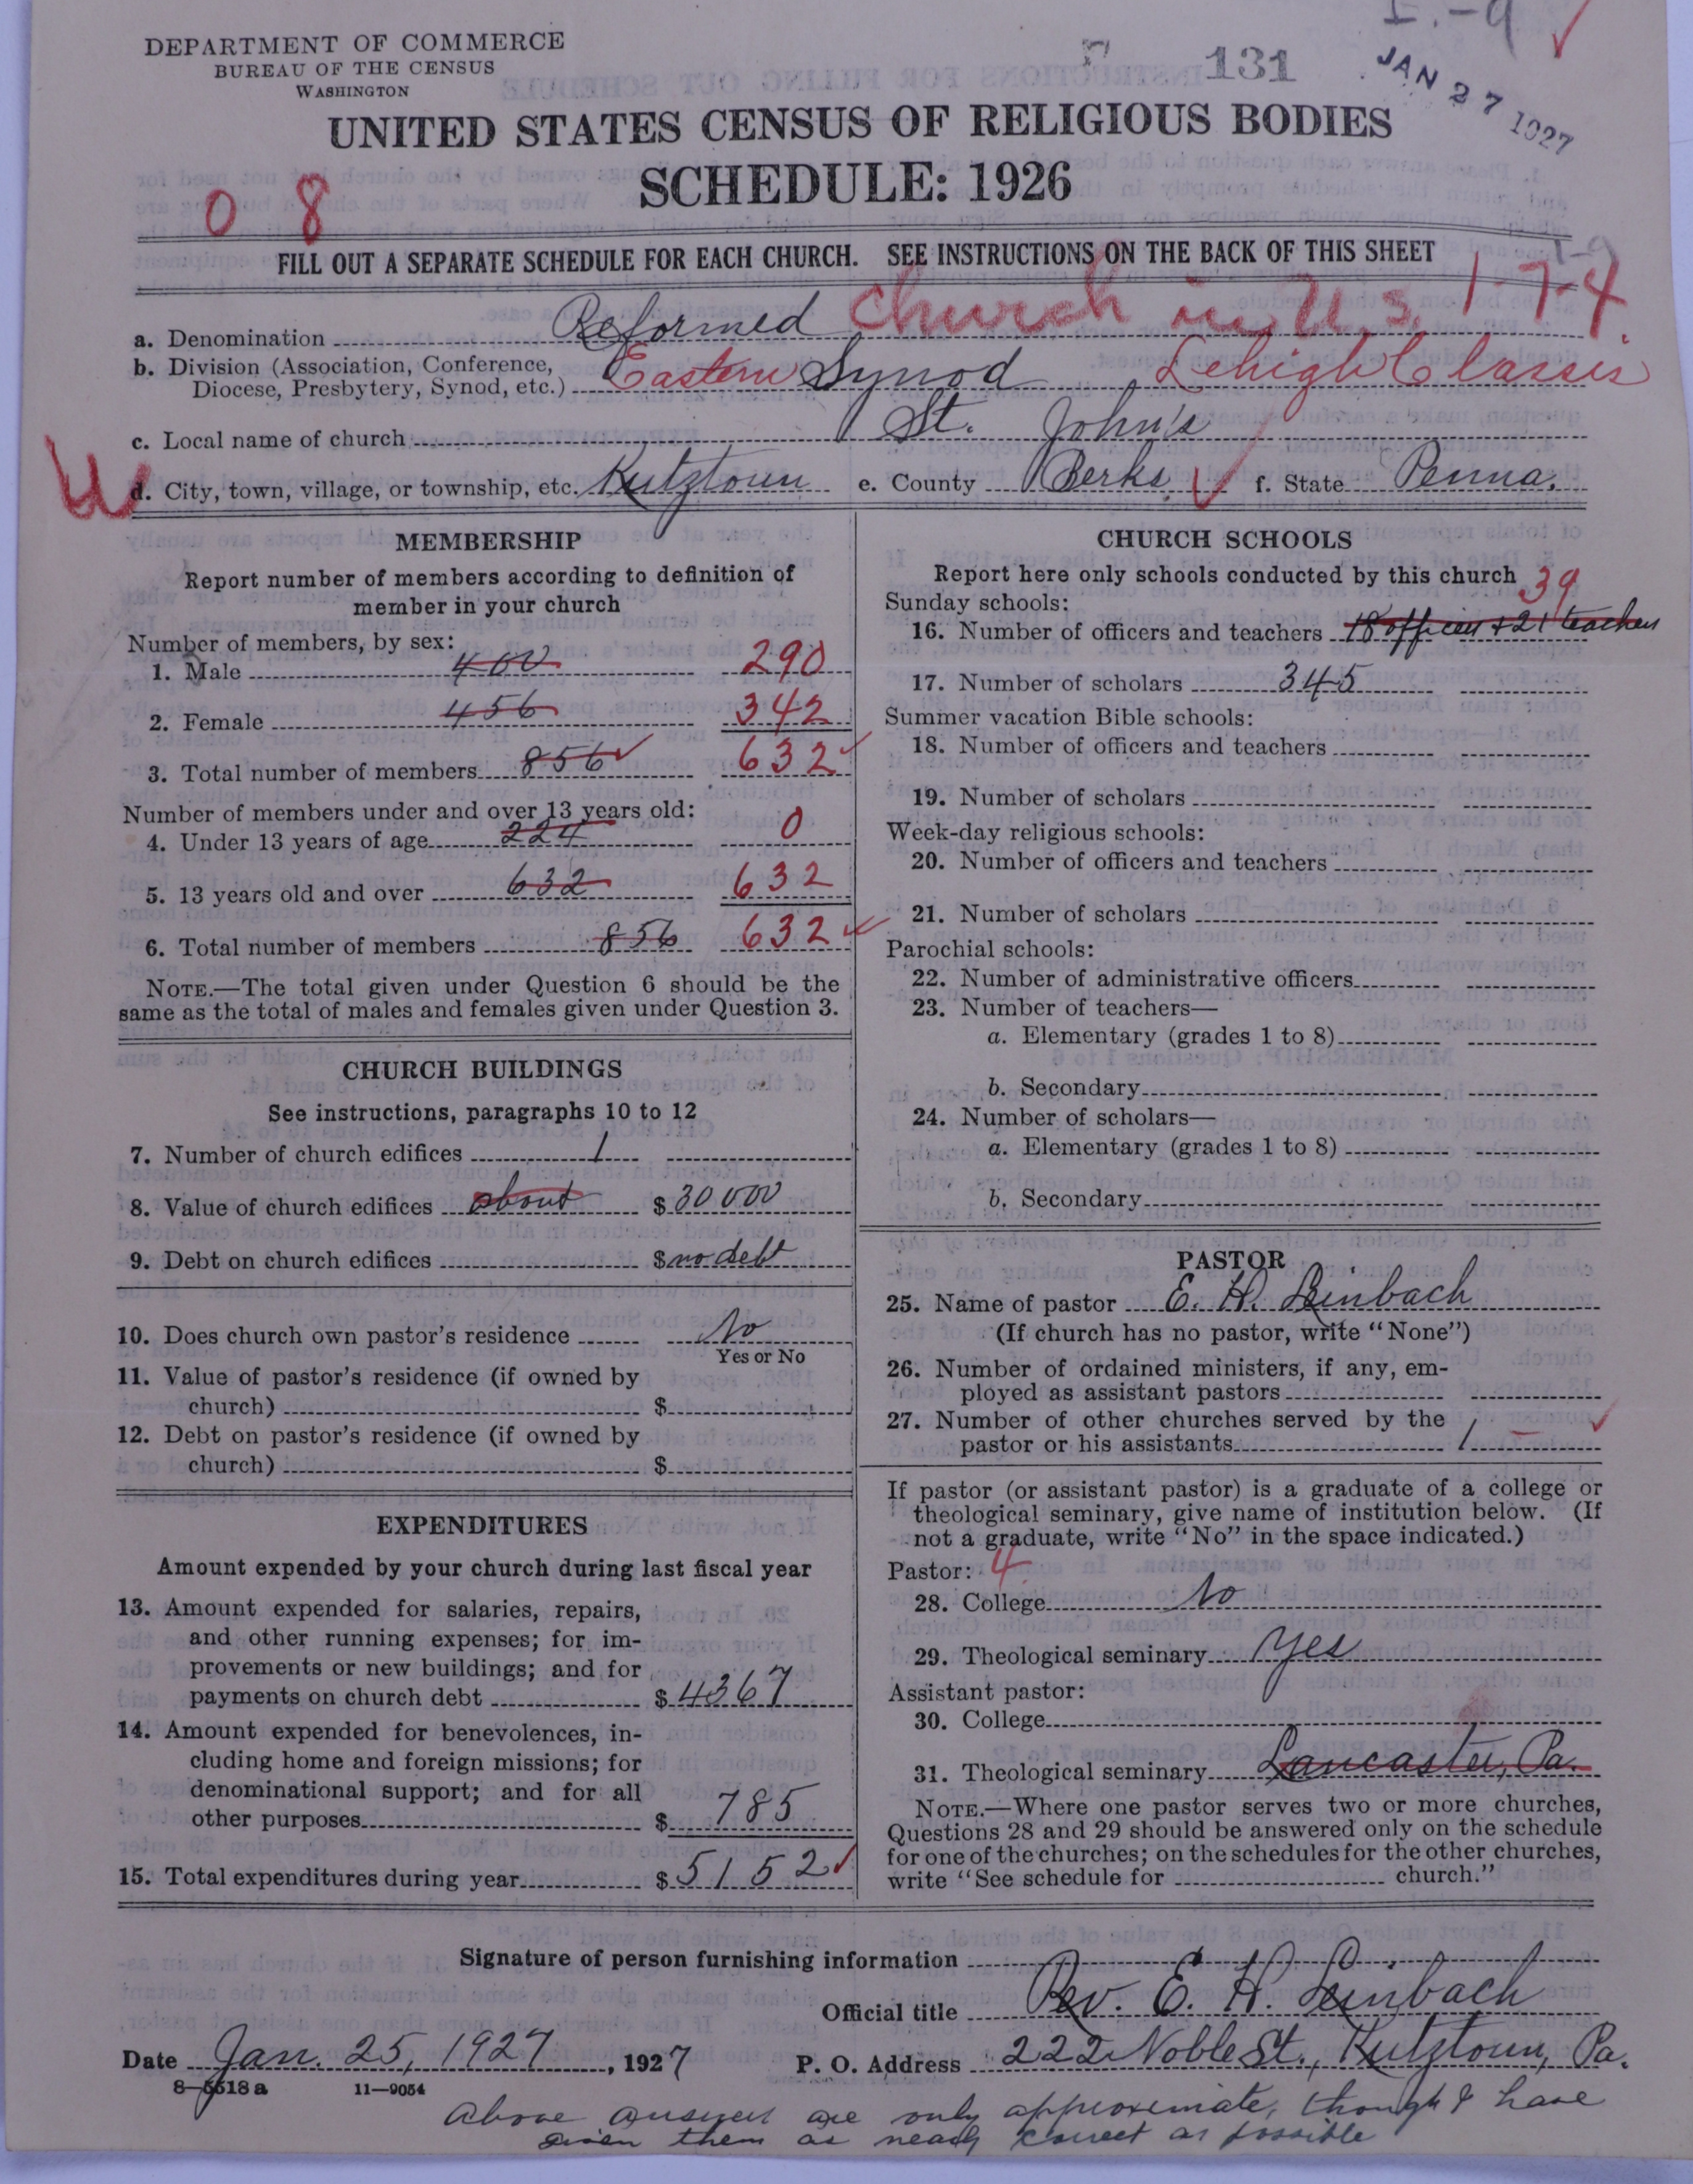 I.-9
DEPARTMENT OF COMMERCE
BUREAU OF THE CENSUS
WASHINGTON
131
JAN 27 1927
UNITED STATES CENSUS OF RELIGIOUS BODIES
SCHEDULE: 1926
0 8
FILL OUT A SEPARATE SCHEDULE FOR EACH CHURCH. SEE INSTRUCTIONS ON THE BACK OF THIS SHEET
1-74
a. Denomination Reformed Church in U.S.
b. Division (Association, Conference,
Diocese, Presbytery, Synod, etc.) Eastern Synod Lehigh Classis
c. Local name of church St. John's
d. City, town, village, or township, etc. Kutztown e. County Berks f. State Penna.
MEMBERSHIP
Report number of members according to definition of
member in your church
Number of members, by sex:
1. Male 400 290
2. Female 456 342
3. Total number of members 856 632
Number of members under and over 13 years old:
4. Under 13 years of age 224 0
5. 13 years old and over 632 632
6. Total number of members 856 632
NOTE.—The total given under Question 6 should be the
same as the total of males and females given under Question 3.
CHURCH BUILDINGS
See instructions, paragraphs 10 to 12
7. Number of church edifices 1
8. Value of church edifices about $30000
9. Debt on church edifices $no debt
10. Does church own pastor's residence No
Yes or No
11. Value of pastor's residence (if owned by
church) $
12. Debt on pastor's residence (if owned by
church) $
EXPENDITURES
Amount expended by your church during last fiscal year
13. Amount expended for salaries, repairs,
and other running expenses; for im-
provements or new buildings; and for
payments on church debt $4367
14. Amount expended for benevolences, in-
cluding home and foreign missions; for
denominational support; and for all
other purposes $785
15. Total expenditures during year $5152
CHURCH SCHOOLS
Report here only schools conducted by this church
39
Sunday schools:
16. Number of officers and teachers 18 officers + 21 teachers
17. Number of scholars 345
Summer vacation Bible schools:
18. Number of officers and teachers
19. Number of scholars
Week-day religious schools:
20. Number of officers and teachers
21. Number of scholars
Parochial schools:
22. Number of administrative officers
23. Number of teachers—
a. Elementary (grades 1 to 8)
b. Secondary
24. Number of scholars—
a. Elementary (grades 1 to 8)
b. Secondary
PASTOR
25. Name of pastor E. H. Leinbach
(If church has no pastor, write "None")
26. Number of ordained ministers, if any, em-
ployed as assistant pastors
27. Number of other churches served by the
pastor or his assistants 1
If pastor (or assistant pastor) is a graduate of a college or
theological seminary, give name of institution below. (If
not a graduate, write "No" in the space indicated.)
Pastor: 4
28. College No
29. Theological seminary Yes
Assistant pastor:
30. College
31. Theological seminary Lancaster, Pa.
NOTE.—Where one pastor serves two or more churches,
Questions 28 and 29 should be answered only on the schedule
for one of the churches; on the schedules for the other churches,
write "See schedule for church."
Signature of person furnishing information
Official title Rev. E. H. Leinbach
Date Jan. 25, 1927, 1927 P. O. Address 222 Noble St., Kutztown, Pa.
8—5518a 11—9054
Above answers are only approximate, though I have
given them as nearly correct as possible